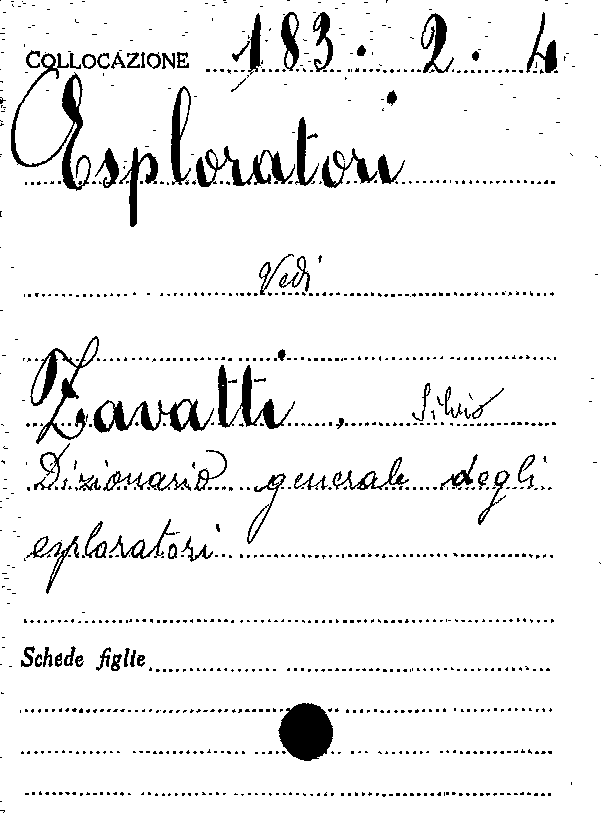 COLLOCAZIONE 183. 2. 4
Esploratori
Vedi
Zavatti, Silvio
Dizionario generale degli
esploratori
Schede figlie